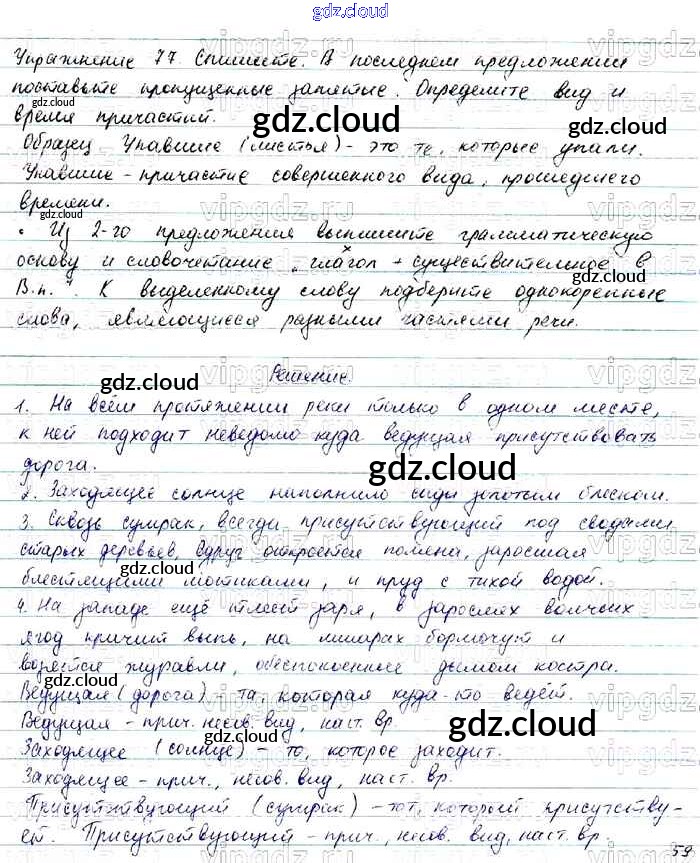 gdz.cloud
Упражнение 77. Спишите. В последнем предложении
поставьте пропущенные запятые. Определите вид и
gdz.cloud
время причастий.
gdz.cloud
Образец Упавшие (листья) - это те, которые упали.
Упавшие - причастие совершенного вида, прошедшего
времени.
gdz.cloud
• Из 2-го предложения выпишите грамматическую
основу и словочетание „глагол + существительное в
В.п.". К выделенному слову подберите однокоренные
слова, являющиеся разными частями речи.
Решение.
gdz.cloud
1. На всём протяжении реки только в одном месте,
к ней подходит неведомо куда ведущая присутствовать
дорога.
gdz.cloud
2. Заходящее солнце наполнило сады золотым блеском.
gdz.cloud
3. Сквозь сумрак, всегда присутствующий под сводами
старых деревьев, вдруг откроется поляна, заросшая
gdz.cloud
блестящими мотиками, и пруд с тихой водой.
4. На западе ещё тлеет заря, в зарослях волчьих
ягод кричит выпь, на мшарах бормочут и
возятся журавли, обеспокоенные дымом костра.
gdz.cloud
Ведущая (дорога) - та, которая куда-то ведёт.
Ведущая - прич. несов. вид, наст. вр.
gdz.cloud
Заходящее (солнце) - то, которое заходит.
gdz.cloud
Заходящее - прич., несов. вид, наст. вр.
Присутствующий (сумрак) - тот, который присутству-
ет. Присутствующий - прич., несов. вид, наст. вр.
gdz.cloud
59
vipgdz.ru